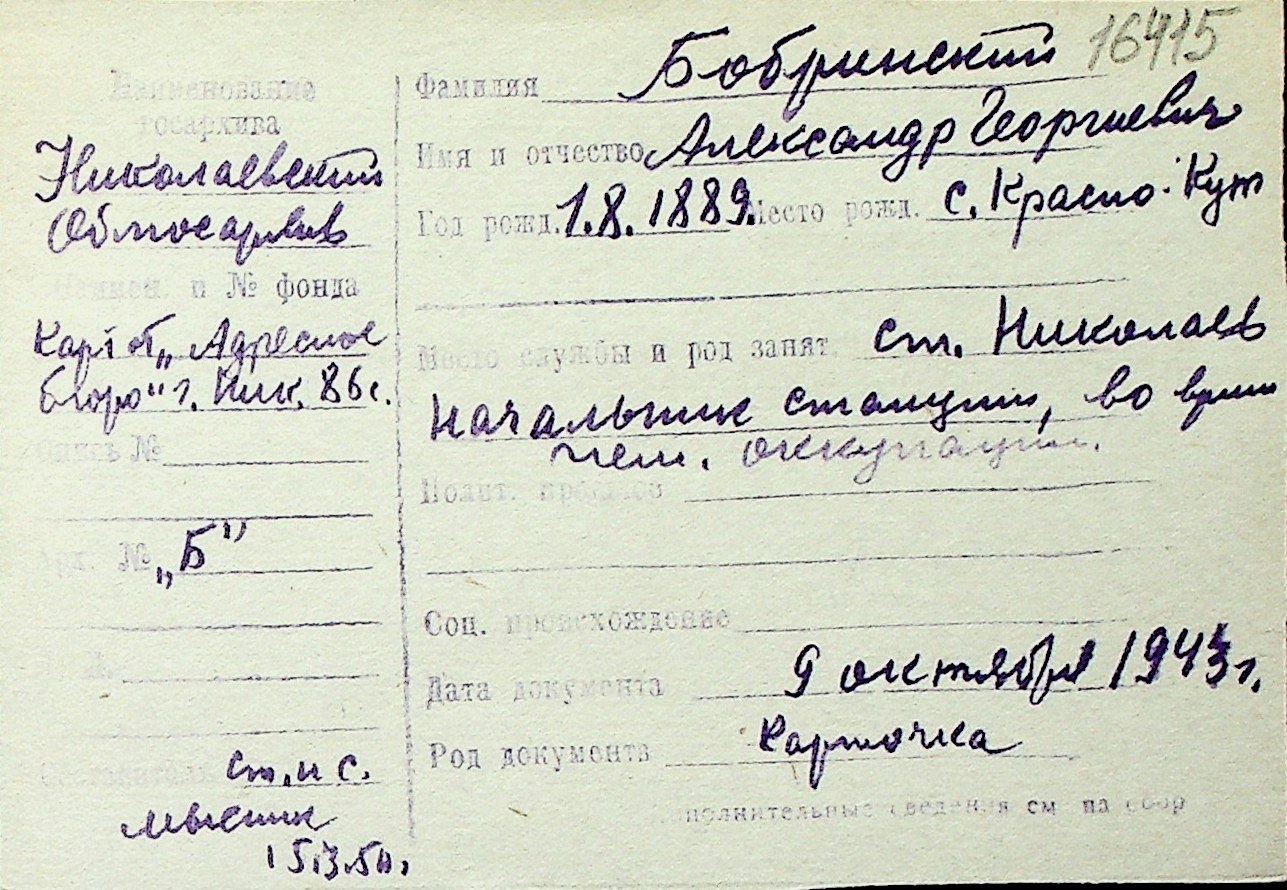 16415
Наименование
госархива
Николаевский
Облгосархив
Наимен. и № фонда
Карт от „Адресное
бюро" г. Ник. 86 с.
Опись №
Арх. № „Б"
ст. н с.
15.3.50.
Фамилия Бобринский
Имя и отчество Александр Георгиевич
Год рожд. 1.8.1889. Место рожд. с. Красно-Кут
Место службы и род занят. ст. Николаев
начальник станции, во врем
нем. оккупации.
Полит. прошлое
Соц. происхождение
Дата документа 9 октября 1943 г.
Род документа карточка
Дополнительные сведения см на обор